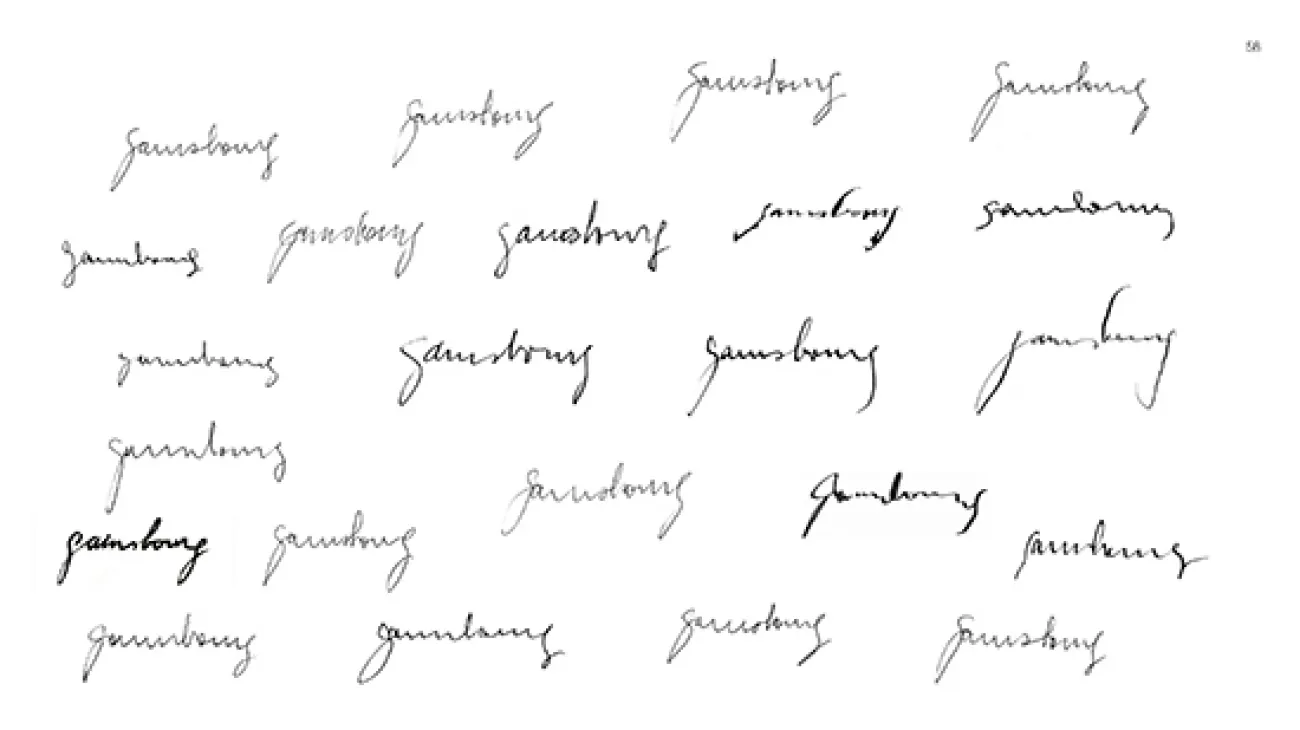 gainsbourg gainsbourg gainsbourg gainsbourg
gainsbourg gainsbourg gainsbourg gainsbourg gainsbourg
gainsbourg gainsbourg gainsbourg gainsbourg
gainsbourg gainsbourg gainsbourg
gainsbourg gainsbourg gainsbourg
gainsbourg gainsbourg gainsbourg gainsbourg